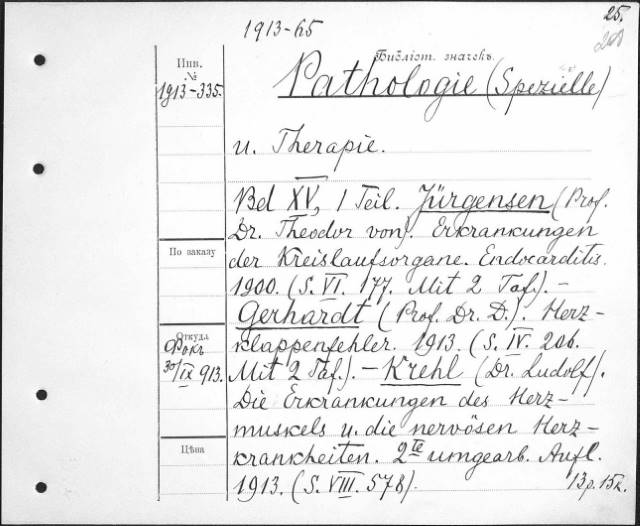 25.
1913-65
200
Библіот. значекъ.
Инв.
№
1913-335.
Pathologie (Spezielle)
u. Therapie.
Bd XV, 1 Teil. Jürgensen (Prof.
Dr. Theodor von). Erkrankungen
По заказу
der Kreislaufsorgane. Endocarditis.
1900. (S. VI. 177. Mit 2 Taf.). –
Gerhardt (Prof. Dr. D.). Herz-
Откуда
Фокъ
30/IX 913.
klappenfehler. 1913. (S. IV. 206.
Mit 2 Taf.). – Krehl (Dr. Ludolf).
Die Erkrankungen des Herz-
muskels u. die nervösen Herz-
Цѣна
krankheiten. 2te umgearb. Aufl.
1913. (S. VIII. 578).
13 р. 15 к.